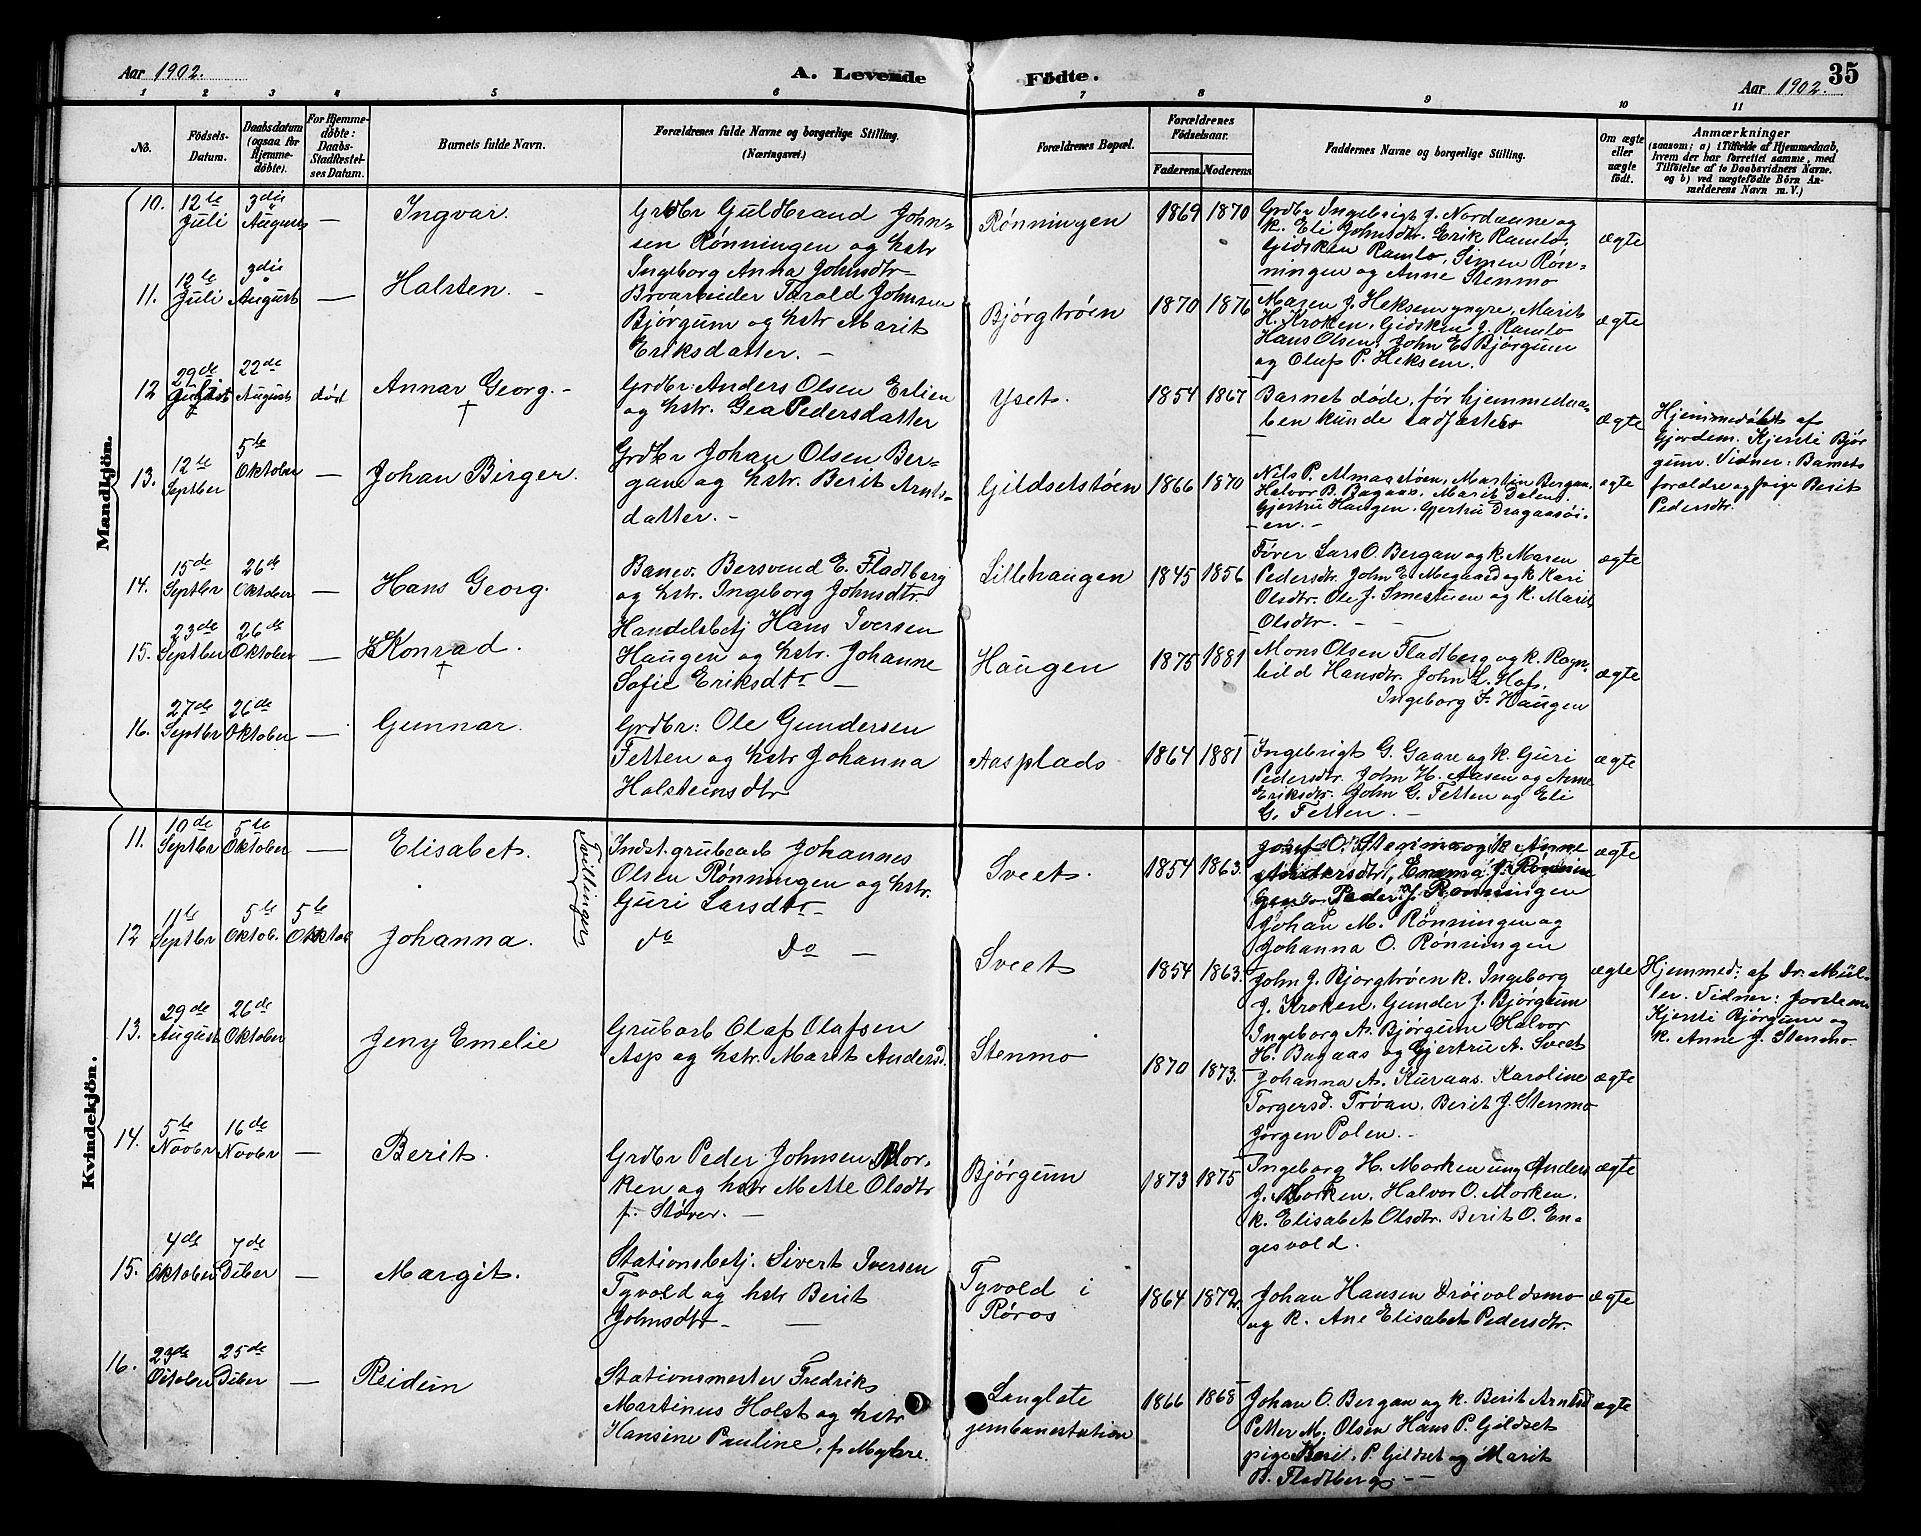 Aar 1902.
A. Levende
Födte.
Aar 1902.
35
1 2 3 4 5 6 7 8 9 10 11
No.
Födsels-
Datum.
Daabsdatum
(ogsaa for
Hjemme-
døbte).
For Hjemme-
døbte:
Daabs-
Stadfæstel-
ses Datum.
Barnets fulde Navn.
Forældrenes fulde Navne og borgerlige Stilling.
(Næringsvei.)
Forældrenes Bopæl.
Forældrenes
Födselsaar.
Faderens. Moderens.
Faddernes Navne og borgerlige Stilling.
Om ægte
eller
uægte
født.
Anmærkninger
(saasom: a) i Tilfælde af Hjemmedaab,
hvem der har forrettet samme, med
Tilføielse af to Daabsvidners Navne.
og b) ved uægtefödte Börn An-
melderens Navn m. V.)
Mandkjön.
10. 12te Juli
3die August
—
Ingvar.
Grdbr Guldbrand John-
sen Rønningen og hstr
Ingeborg Anna Johnsdtr
Rønningen
1869 1870
Grdbr Ingebrigt J. Nordaune og
k. Eli Johnsdtr. Erik Ramlo,
Gidsken Ramlo, Simen Røn-
ningen og Anne Stenmo
ægte
11. 12te Juli
3die August
—
Halsten. -
Broarbeider Tarald Johnsen
Bjørgum og hstr Marit
Eriksdatter. -
Bjørgtrøen
1870 1876
Maren J. Heksem yngre, Marit
H. Kroken, Gidsken J. Ramlo
Hans Olsen, John E. Bjørgum
og Oluf P. Heksem.
ægte
12 29de
22de August
død
Annar Georg. -
†
Grdbr: Anders Olsen Erlien
og hstr. Gea Pedersdatter
Yset.
1854 1867
Barnet døde, før hjemmedaa-
ben kunde stadfæstes
ægte
Hjemmedøbt af
Gjordem. Kjersti Bjør
gum. Vidner: Barnets
forældre og pige Berit
Pedersdtr.
13. 12te Septbr
5te Oktober
—
Johan Birger.
Grdbr Johan Olsen Ber-
gan og hstr. Berit Arnts-
datter. -
Gildsetstøen
1866 1870
Nils P. Almaastøen, Martin Bergan,
Halvor B. Bagaas, Marit Dalen,
Gjertru Haugen, Gjertru Dragaasøi-
en. -
ægte
14. 15de Septbr
26de Oktober
—
Hans Georg.
Banev. Bersvend E. Fladberg
og hstr. Ingeborg Johnsdtr.
Lillehaugen
1845 1856
Fører Lars O. Bergan og k. Maren
Pedersdtr. John E. Megaard og k. Kari
Olsdtr. Ole J. Smestuen og k. Marit
Olsdtr. - -
ægte
15. 23de Septbr
26de Oktober
—
Konrad.
†
Handelsbetj Hans Iversen
Haugen og hstr. Johanne
Sofie Eriksdtr -
Haugen
1875 1881
Mons Olsen Fladberg og k. Ragn-
hild Hansdtr. John L. Hof,
Ingeborg F. Haugen
ægte
16. 27de Septbr
26de Oktober
—
Gunnar.
Grdbr: Ole Gundersen
Tetten og hstr Johanna
Holsteinsdtr
Aasplads
1864 1881
Ingebrigt G. Gaare og k. Guri
Pedersdtr. John H. Aasen og Anne
Eriksdtr. John G. Tetten og Eli
G. Tetten. -
ægte
Kvindekjön.
11. 10de Septbr
5te Oktober
—
Elisabet.
Tvillinger
Indst. grubearb Johannes
Olsen Rønningen og hstr.
Guri Larsdtr
Sveet.
1854 1863.
Josef O. og k Anne
Emma J. Rønnin
gen Peder J. Rønningen
Johan M. Rønningen og
Johanna O. Rønningen
ægte
12 11te Septbr
5te Oktob.
5te Oktob
Johanna.
do do -
Sveet
1854 1863.
John J. Bjørgtrøen k. Ingeborg
J. Kroken, Gunder J. Bjørgum
Ingeborg A. Bjørgum Halvor
H. Bagaas og Gjertru A. Sveet
ægte
Hjemmed: af Dr. Mül-
ler. Vidner: Jordem
Kjersti Bjørgum og
k. Anne J. Stenmo.
13. 29de August
26de Oktober
Jeny Emelie
Grubarb Olaf Olafsen
Asp og hstr. Marit Andersd.
Stenmo
1870 1873.
Johanna A. Kuraas. Karoline
Torgersd. Trøan, Berit J. Stenmo
Jørgen Polen. -
ægte
14. 5te Novbr
16de Novbr
—
Berit.
Grdbr Peder Johnsen Mor-
ken og hstr Mette Olsdtr
f. Støver. -
Bjørgum
1873 1875
Ingeborg H. Morken ung Anders
J. Morken, Halvor O. Morken.
k. Elisabet Olsdtr. Berit O. En-
gesvold.
ægte
15. 4de Oktober
7de Dcbr
—
Margit.
Stationsbetj. Sivert Iversen
Tyvold og hstr Berit
Johnsdtr - -
Tyvold i
Røros
1864 1872.
Johan Hansen Drøivoldsmo
og k. Ane Elisabet Pedersdtr.
ægte
16. 23de
25de Dcbr
—
Reidun
Stationsmester Fredrik
Martinus Holst og hstr
Hansine Pauline, f. Myhre.
Langlete
jernbanestation
1866 1868
Johan O. Bergan og k. Berit Arntsd
Petter M. Olsen Hans P. Gildset
pige Berit. P. Gildset og Marit
B. Fladberg. -
ægte